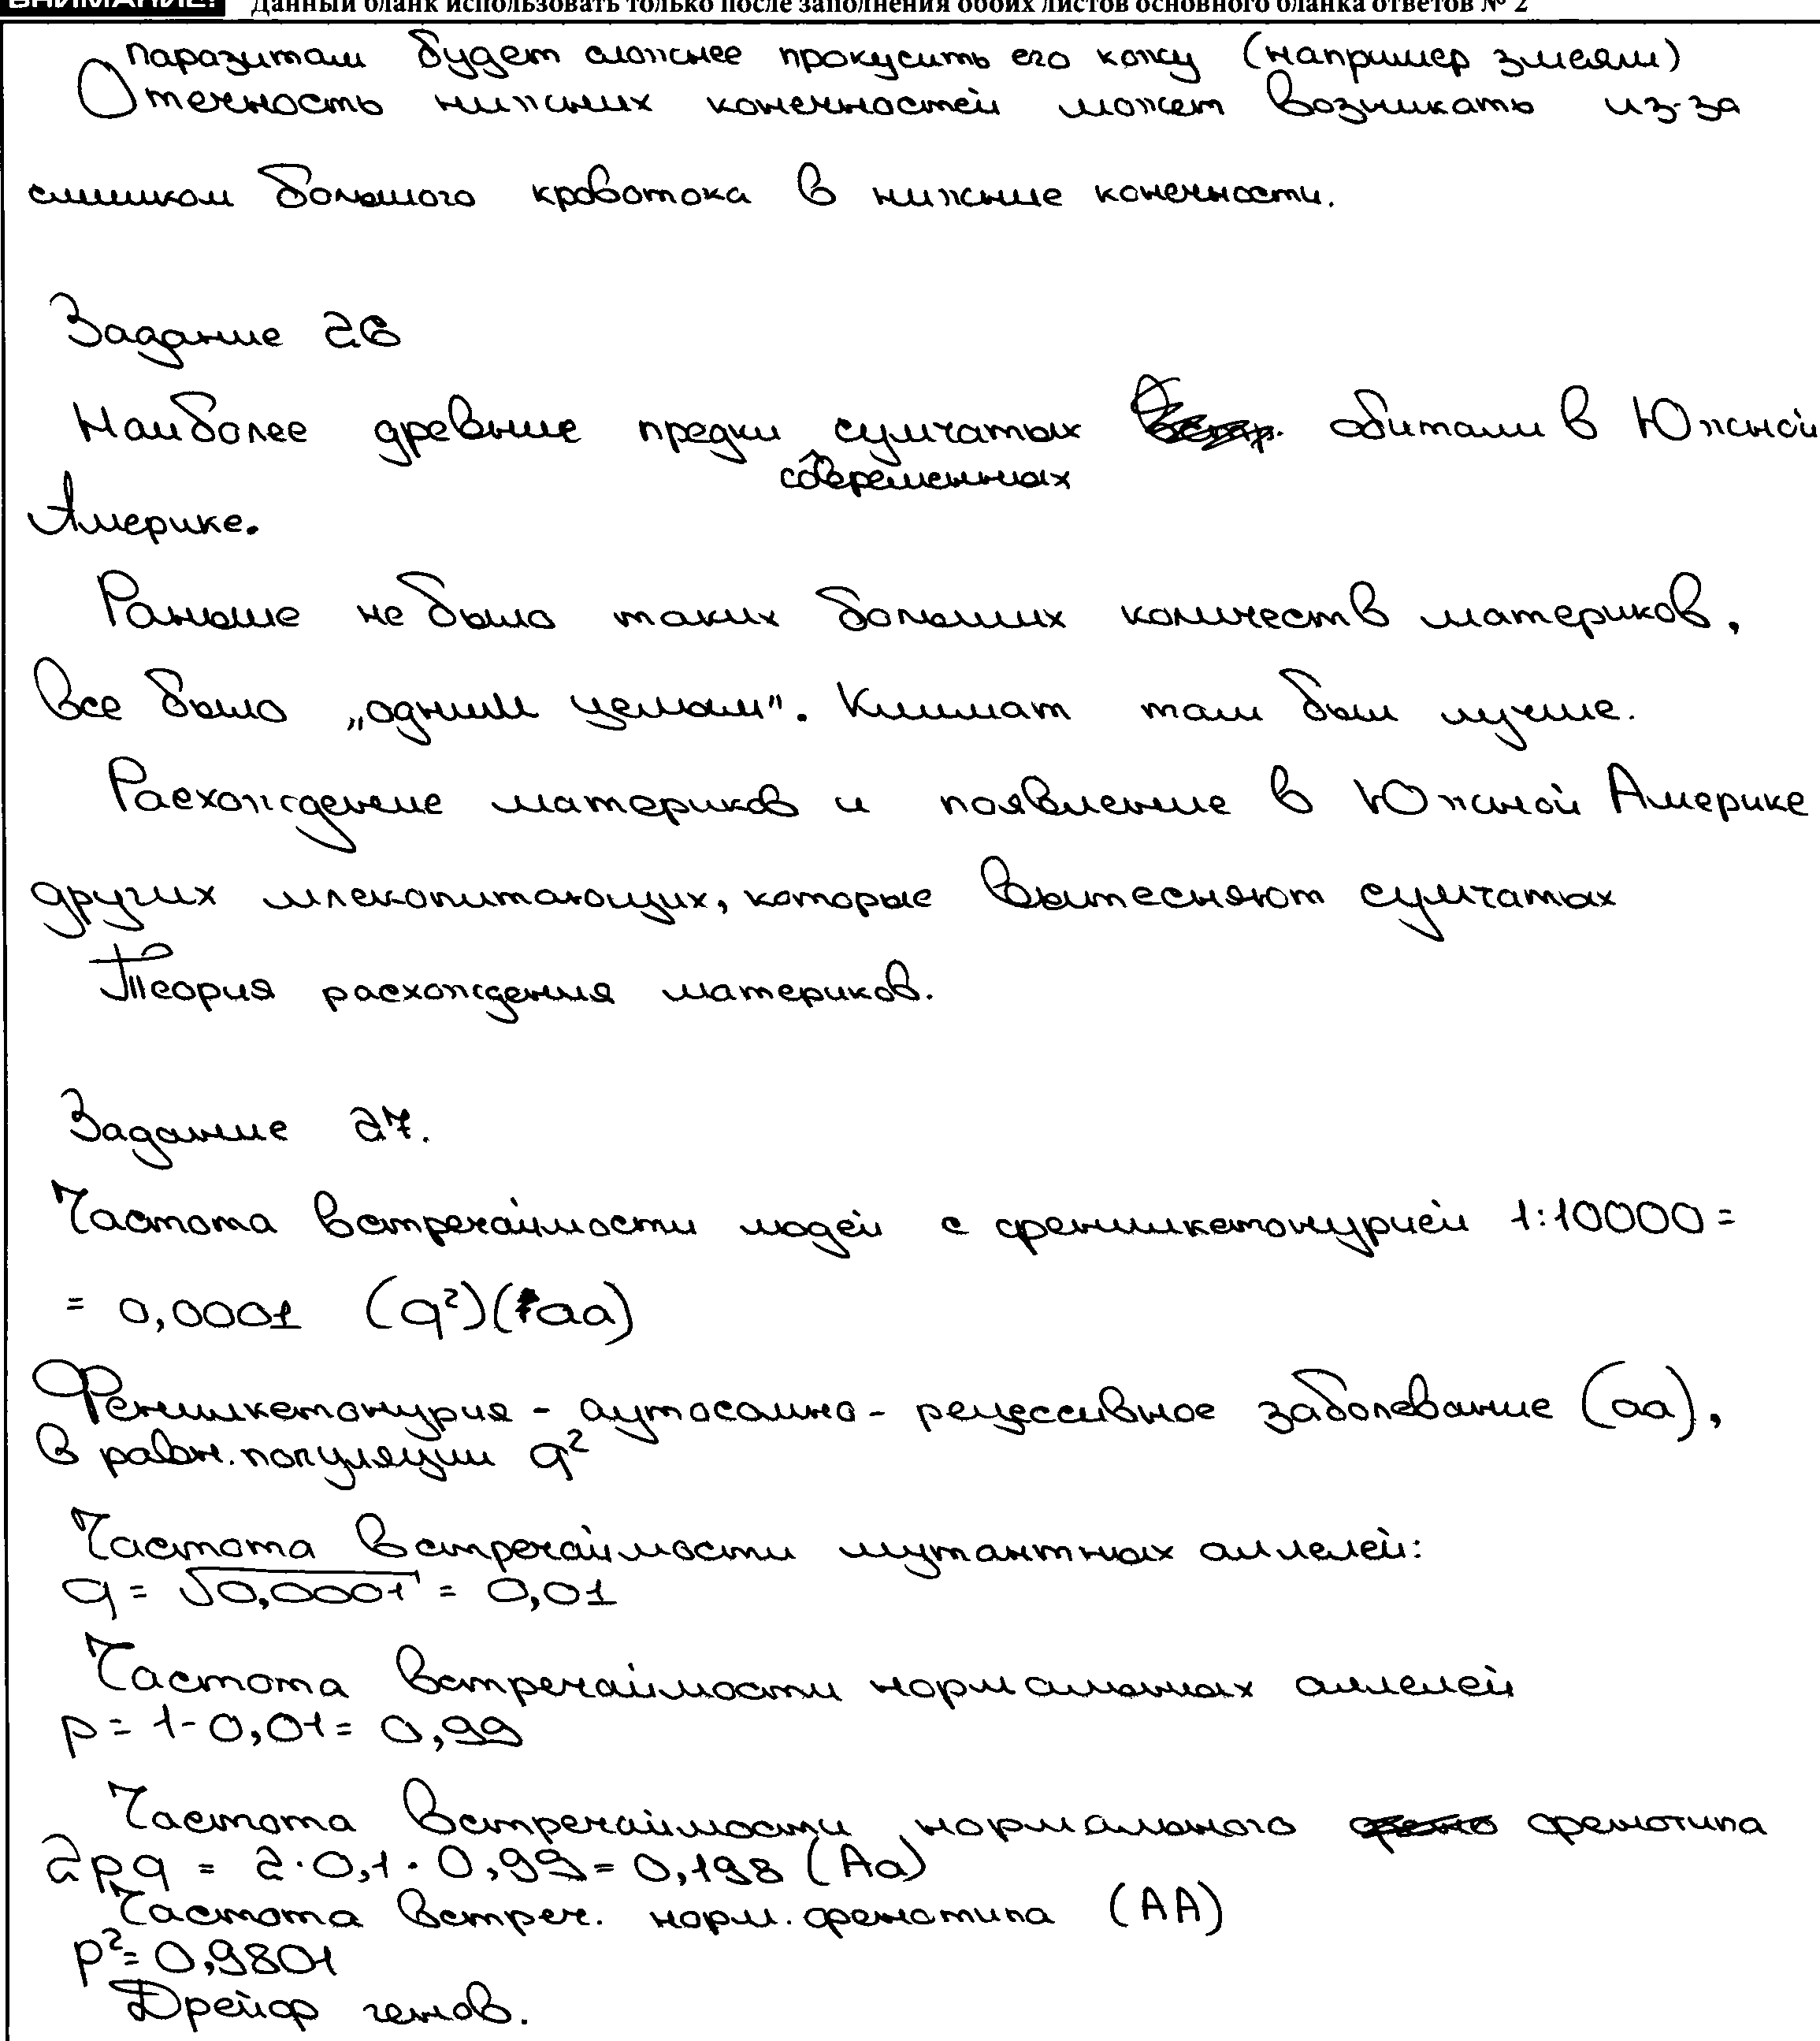 ВНИМАНИЕ! Данный бланк использовать только после заполнения обоих листов основного бланка ответов № 2
паразитам будет сложнее прокусить его кожу (например змеям)
Отечность нижних конечностей может возникать из-за
слишком большого кровотока в нижние конечности.
Задание 26
Наиболее древние предки сумчатых обитали в Южной
современных
Америке.
Раньше не было таких больших количеств материков,
все было „одним целым". Климат там был лучше.
Расхождение материков и появление в Южной Америке
других млекопитающих, которые вытесняют сумчатых
Теория расхождения материков.
Задание 27.
Частота встречаймости людей с фенилкетонурией 1:10000=
= 0,0001 (q²)(aa)
Фенилкетонурия - аутосомно-рецессивное заболевание (aa),
в равн. популяции q²
Частота встречаймости мутантных аллелей:
q = √0,0001 = 0,01
Частота встречаймости нормальных аллелей
p = 1-0,01 = 0,99
Частота встречаймости нормального фенотипа
2pq = 2·0,1·0,99=0,198 (Aa)
Частота встреч. норм. фенотипа (AA)
p²=0,9801
Дрейф генов.